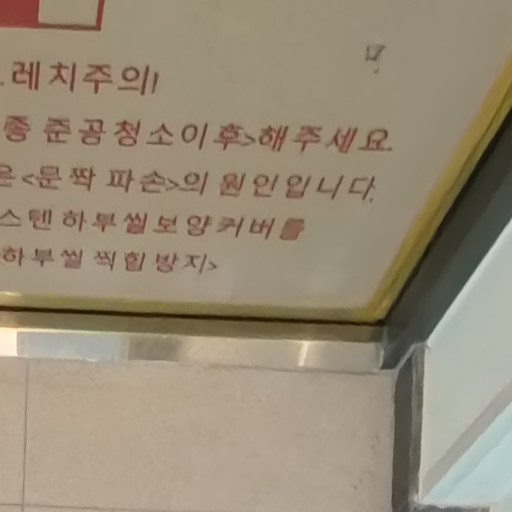 레치주의!
종 준공청소이후>해주세요.
은 <문짝 파손>의 원인입니다.
스텐 하부씰보양커버를
하부씰 찍힘 방지>